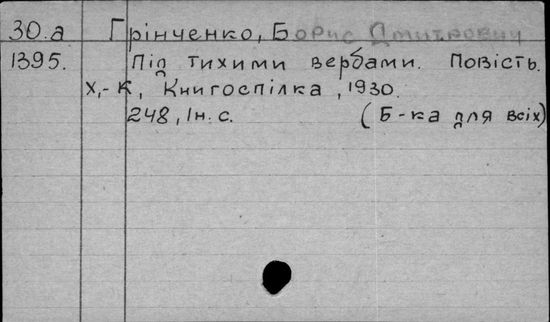 30.а Грінченко, Борис Дмитрович
1395. Під тихими вербами. Повість.
Х.-К., Книгоспілка, 1930.
248, Ін. с. (Б-ка для всіх)